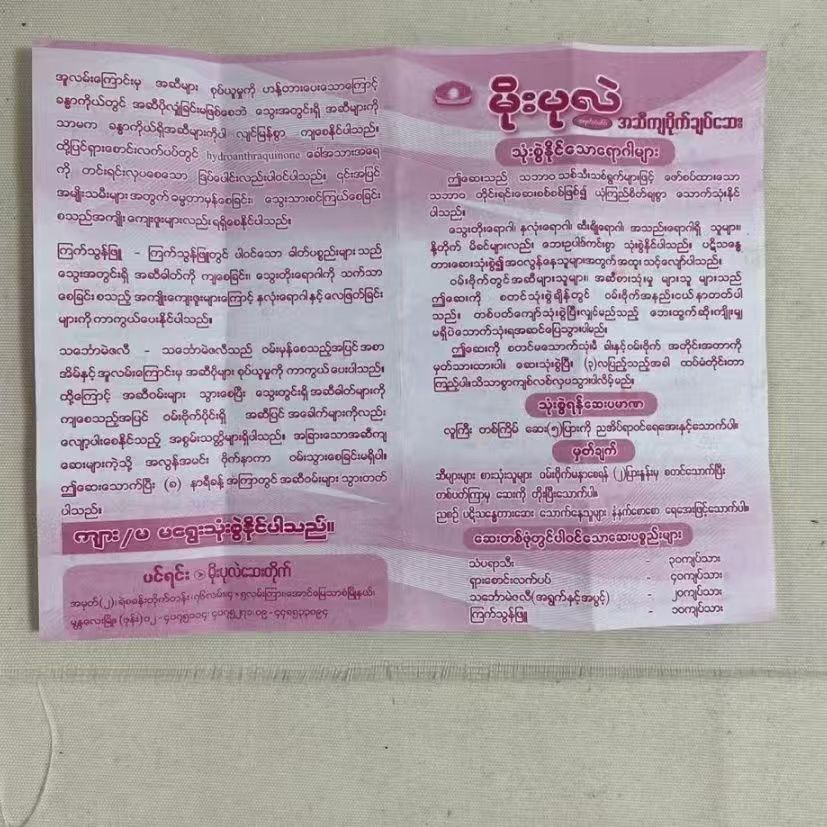 အူလမ်းကြောင်းမှ အဆီများ စုပ်ယူမှုကို ဟန့်တားပေးသောကြောင့်
ခန္ဓာကိုယ်တွင် အဆီပိုလျှံခြင်းမဖြစ်စေဘဲ သွေးအတွင်းရှိ အဆီများကို
သာမက ခန္ဓာကိုယ်ရှိအဆီများကိုပါ လျင်မြန်စွာ ကျစေနိုင်ပါသည်။
ထို့ပြင်ရှားစောင်းလက်ပပ်တွင် hydroanthraquinone ခေါ်အသားအရေ
ကို တင်းရင်းလှပစေသော ဒြပ်ပေါင်းလည်းပါဝင်ပါသည်။ ၎င်းအပြင်
အမျိုးသမီးများအတွက် မွေတာမှန်စေခြင်း၊ သွေးသားစင်ကြယ်စေခြင်း
စသည့်အကျိုးကျေးဇူးများလည်း ရရှိစေနိုင်ပါသည်။
ကြက်သွန်ဖြူ - ကြက်သွန်ဖြူတွင် ပါဝင်သော ဓါတ်ပစ္စည်းများသည်
သွေးအတွင်းရှိ အဆီဓါတ်ကို ကျစေခြင်း၊ သွေးတိုးရောဂါကို သက်သာ
စေခြင်း စသည့် အကျိုးကျေးဇူးများကြောင့် နှလုံးရောဂါနှင့် လေဖြတ်ခြင်း
များကို ကာကွယ်ပေးနိုင်ပါသည်။
သင်္ဘောမဲဇလီ - သင်္ဘောမဲဇလီသည် ဝမ်းမှန်စေသည့်အပြင် အစာ
အိမ်နှင့် အူလမ်းကြောင်းမှ အဆီပိုများ စုပ်ယူမှုကို ကာကွယ်ပေးပါသည်။
ထို့ကြောင့် အဆီဝမ်းများ သွားစေပြီး သွေးတွင်းရှိ အဆီဓါတ်များကို
ကျစေသည့်အပြင် ဝမ်းဗိုက်ပိုင်းရှိ အဆီပြင် အခေါက်များကိုလည်း
လျော့ပါးစေနိုင်သည့် အစွမ်းသတ္တိများရှိပါသည်။ အခြားသောအဆီကျ
ဆေးများကဲ့သို့ အလွန်အမင်း ဗိုက်နာကာ ဝမ်းသွားစေခြင်းမရှိပါ။
ဤဆေးသောက်ပြီး (၈) နာရီခန့် အကြာတွင် အဆီဝမ်းများ သွားတတ်
ပါသည်။
ကျား/မ မရွေးသုံးစွဲနိုင်ပါသည်။
ပင်ရင်း မိုးပုလဲဆေးတိုက်
မိုးပုလဲ
အဆီကျဗိုက်ချပ်ဆေး
သုံးစွဲနိုင်သောရောဂါများ
ဤဆေးသည် သဘာဝ သစ်သီးသစ်ရွက်များဖြင့် ဖော်စပ်ထားသော
သဘာဝ တိုင်းရင်းဆေးစစ်စစ်ဖြစ်၍ ယုံကြည်စိတ်ချစွာ သောက်သုံးနိုင်
ပါသည်။
သွေးတိုးရောဂါ၊ နှလုံးရောဂါ၊ ဆီးချိုရောဂါ၊ အသည်းရောဂါရှိ သူများ၊
နို့တိုက် မိခင်များလည်း ဘေးဥပါဒ်ကင်းစွာ သုံးစွဲနိုင်ပါသည်။ ပဋိသန္ဓေ
တားဆေးသုံးစွဲ၍အဝလွန်နေသူများအတွက်အထူးသင့်လျော်ပါသည်။
ဝမ်းဗိုက်တွင် အဆီများသူများ၊ အဆီစားသုံးမှု များသူ များသည်
ဤဆေးကို စတင်သုံးစွဲချိန်တွင် ဝမ်းဗိုက်အနည်းငယ်နာတတ်ပါ
သည်။ တစ်ပတ်ကျော်သုံးစွဲပြီးလျှင်မည်သည့် ဘေးထွက်ဆိုးကျိုးမျှ
မရှိပဲသောက်သုံးရအဆင်ပြေသွားပါမည်။
ဤဆေးကို စတင်မသောက်သုံးမီ ခါးနှင့်ဝမ်းဗိုက် အတိုင်းအတာကို
မှတ်သားထားပါ။ ဆေးသုံးစွဲပြီး (၃)လပြည့်သည့်အခါ ထပ်မံတိုင်းတာ
ကြည့်ပါ။သိသာစွာကျစ်လစ်လှပသွားပါလိမ့်မည်။
သုံးစွဲရန်ဆေးပမာဏ
လူကြီး တစ်ကြိမ် ဆေး(၅)ပြားကို ညအိပ်ရာဝင်ရေအေးနှင့်သောက်ပါ။
မှတ်ချက်
သီးများများ စားသုံးသူများ ဝမ်းဗိုက်မနာစေရန် (၂)ပြားနှုန်းမှ စတင်သောက်ပြီး
တစ်ပတ်ကြာမှ ဆေးကို တိုးပြီးသောက်ပါ။
ညစဉ် ပဋိသန္ဓေတားဆေး သောက်နေသူများ နံနက်စောစော ရေအေးဖြင့်သောက်ပါ။
ဆေးတစ်ဖုံတွင်ပါဝင်သောဆေးပစ္စည်းများ
သံပရာသီး - ၃၀ကျပ်သား
ရှားစောင်းလက်ပပ် - ၄၀ကျပ်သား
သင်္ဘောမဲဇလီ(အရွက်နှင့်အပွင့်) - ၂၀ကျပ်သား
ကြက်သွန်ဖြူ - ၁၀ကျပ်သား